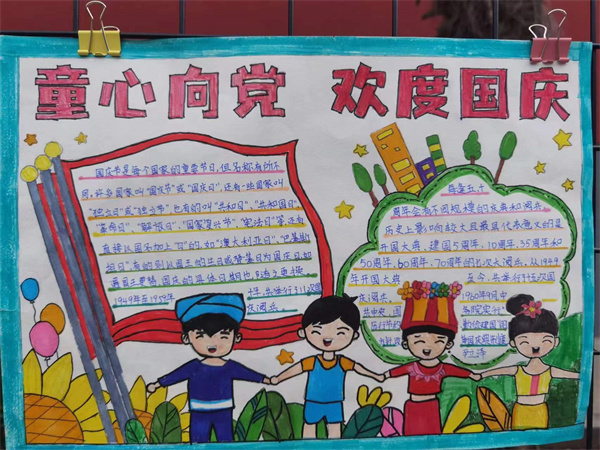 童心向党 欢度国庆
国庆节是每个国家的重要节日,但名称有所不
同。许多国家叫"国庆节"或"国庆日",还有一些国家叫
"独立日"或"独立节",也有的叫"共和日"、"共和国日"、
"革命日"、"解放日"、"国家复兴节"、"宪法日"等,还有
直接以国名加上"日"的,如"澳大利亚日"、"巴基斯
坦日",有的则以国王的生日或登基日为国庆日,如
遇国王更替,国庆的具体日期也随之更换
1949年至1959年
年,共举行了11次国
庆阅兵。
每逢五、十
周年会有不同规模的庆典和阅兵。
历史上影响较大且最具代表意义的是
开国大典,建国5周年、10周年、35周年和
50周年、60周年、70周年的几次大阅兵。从1949
年开国大典
至今,共举行了15次国
庆阅兵。
1960年9月,中
共中央、国
务院